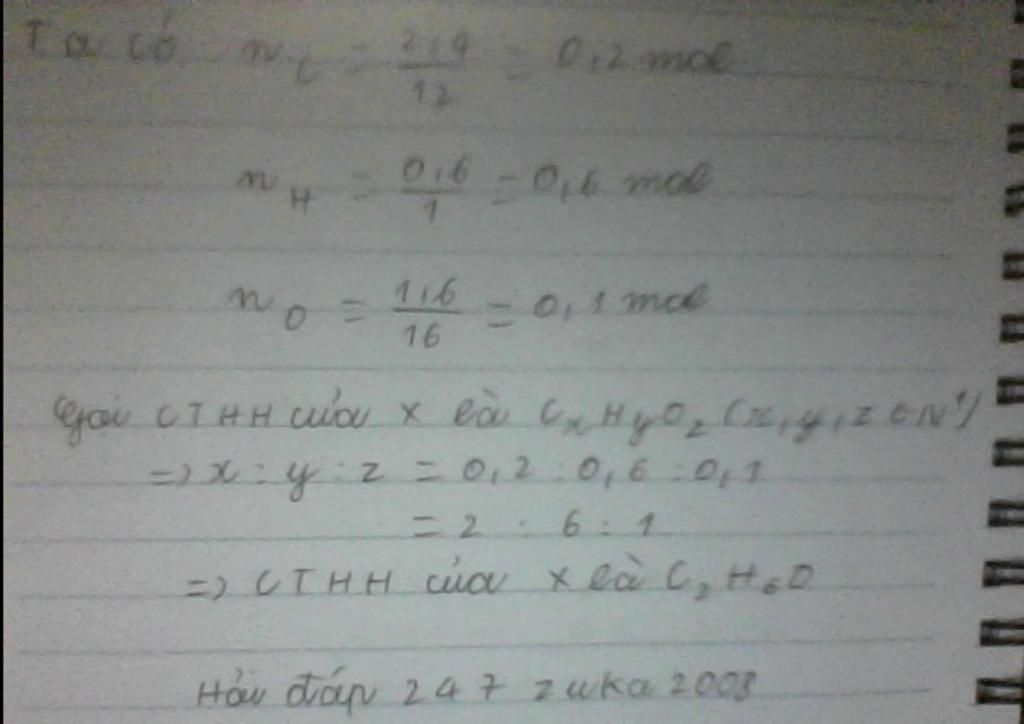 Ta có n_C = 2,4/12 = 0,2 mol
n_H = 0,6/1 = 0,6 mol
n_O = 1,6/16 = 0,1 mol
Gọi CTHH của X là CxHyOz (x,y,z ∈ N*)
=> x : y : z = 0,2 : 0,6 : 0,1
= 2 : 6 : 1
=> CTHH của X là C₂H₆O
Hỏi đáp 247 zuka 2008